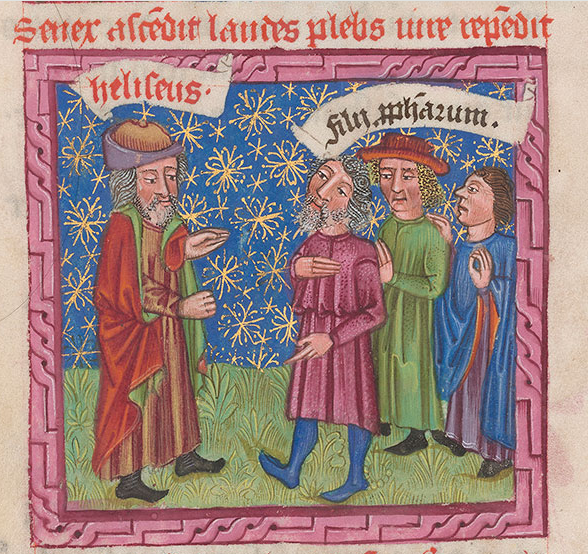 Senex ascēdit laudes plebs iure repēdit
heliseus.
filij pphārum.